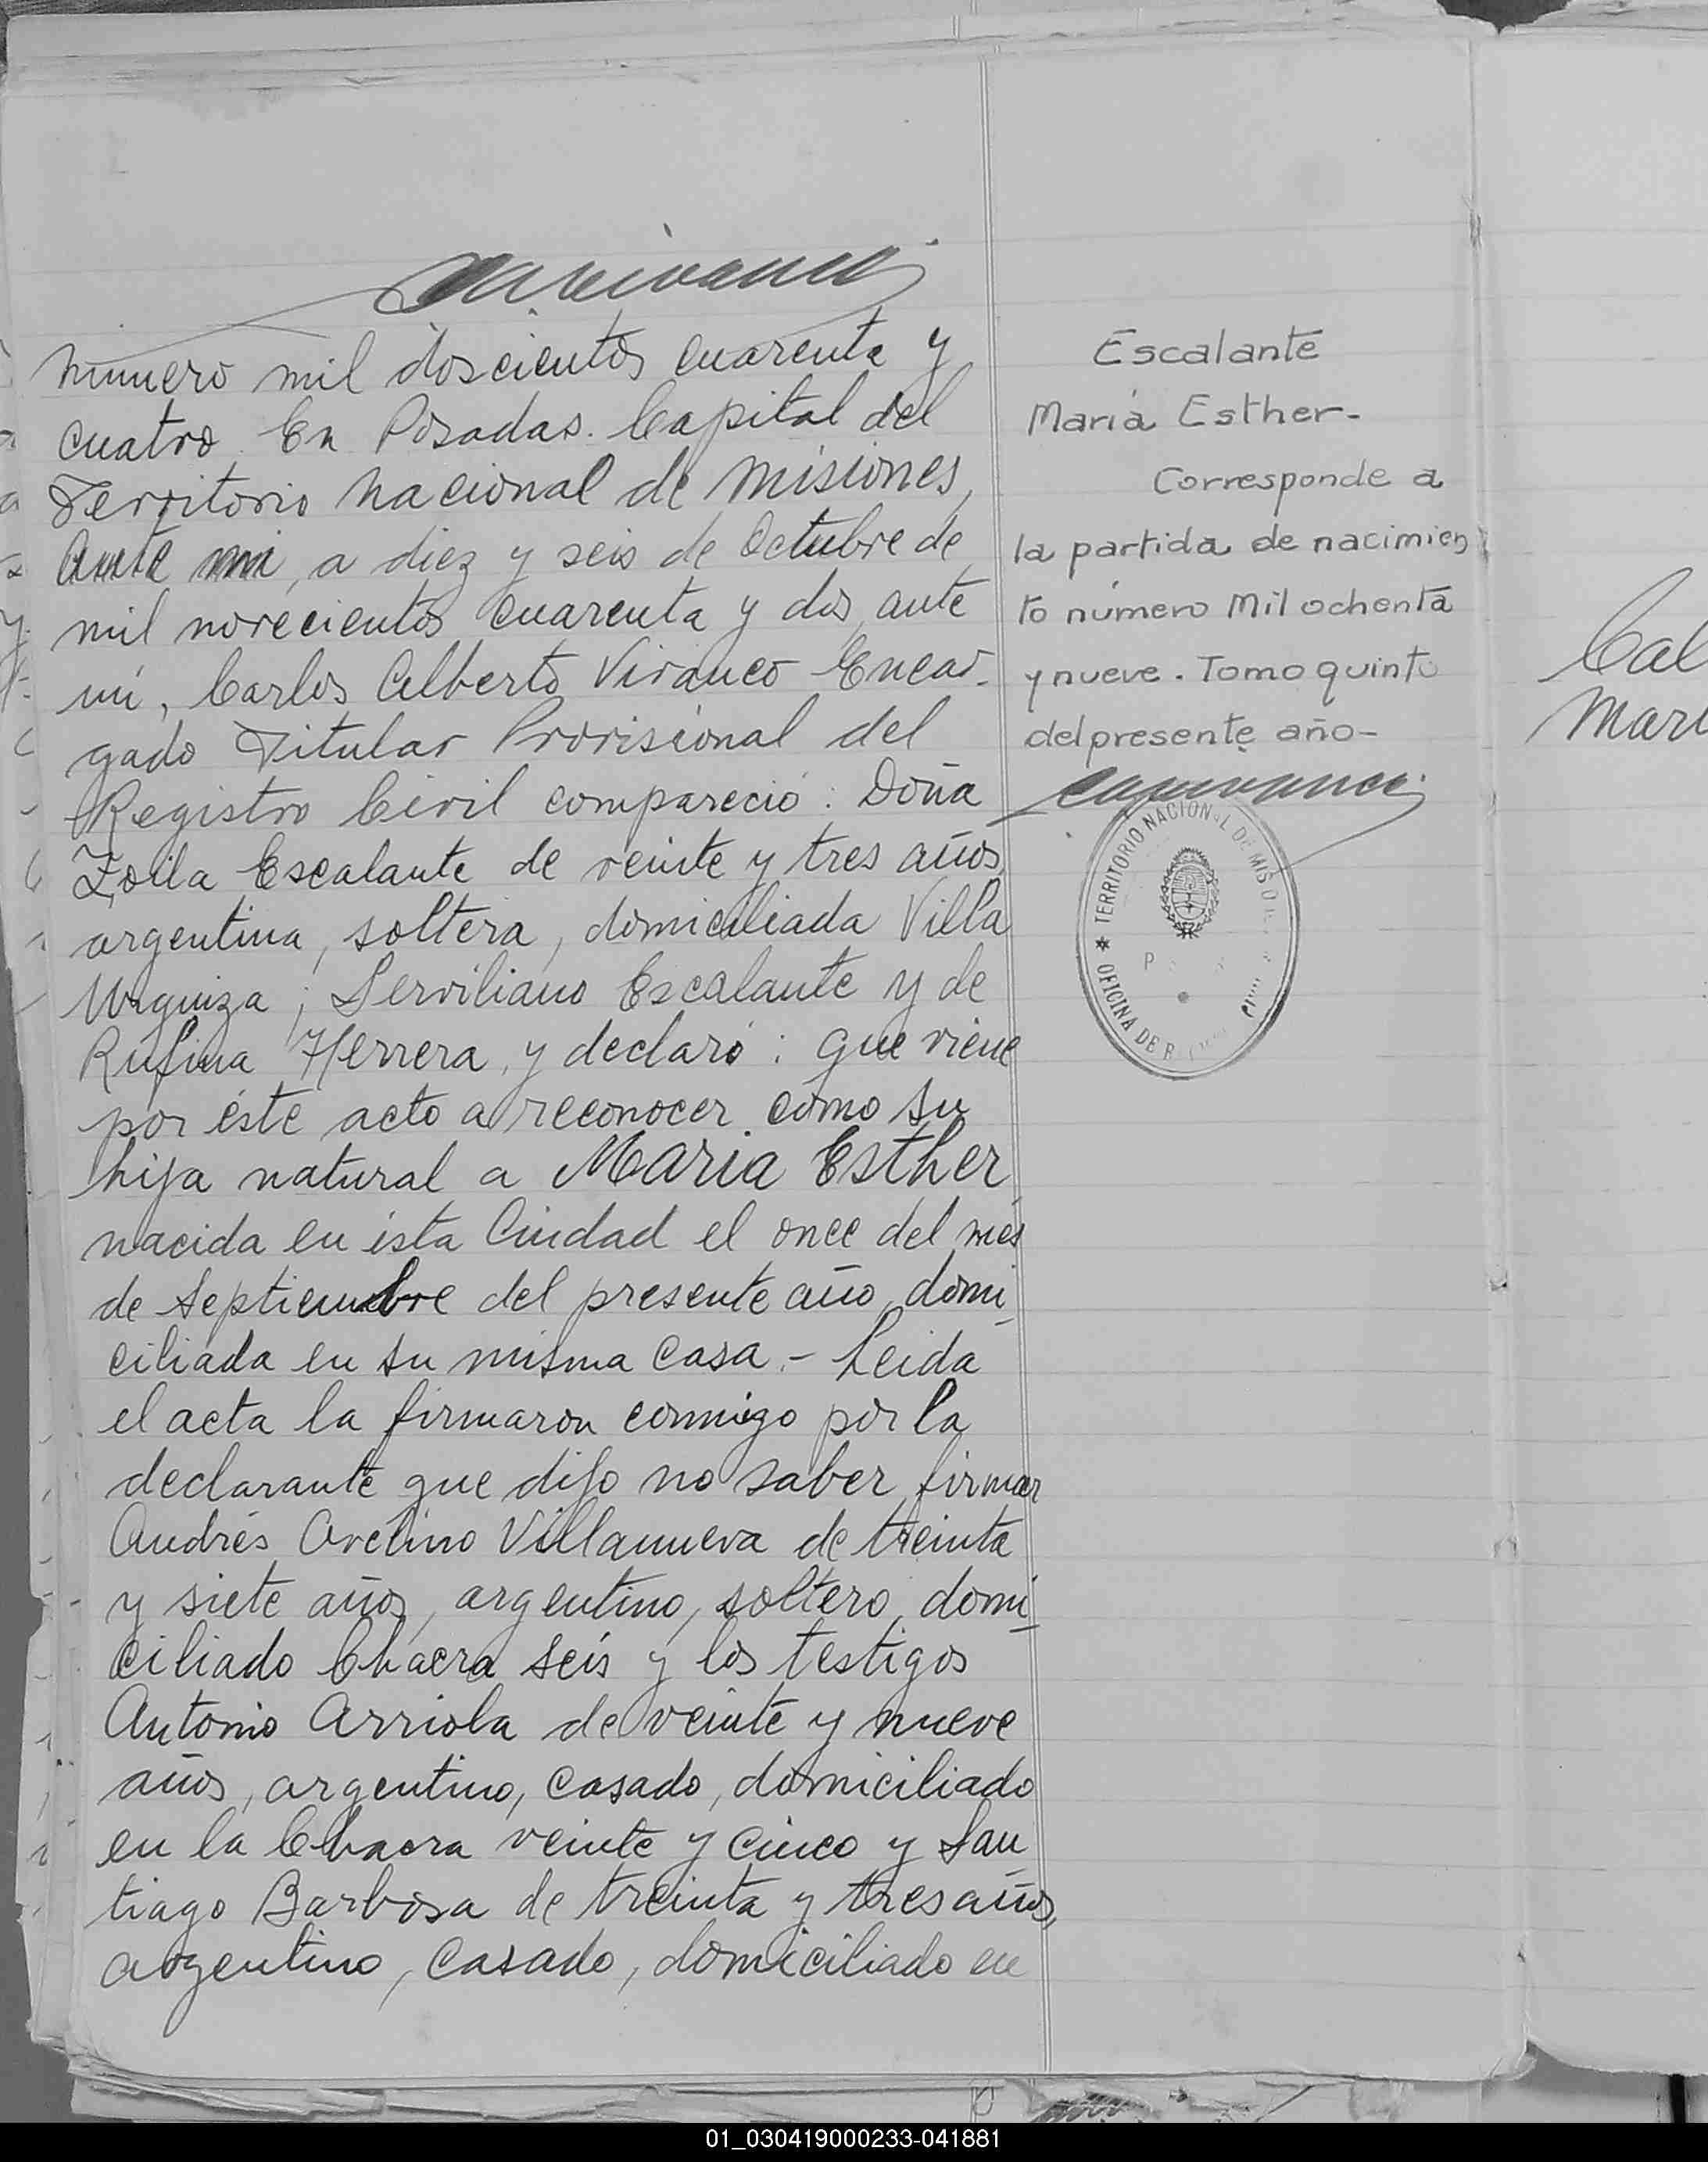 Número mil doscientos cuarenta y
cuatro. En Posadas. Capital del
Territorio Nacional de Misiones,
Ante mi, a diez y seis de Octubre de
mil novecientos cuarenta y dos, ante
mi, Carlos Alberto Vivanco Encar-
gado Titular Provisional del
Registro Civil compareció: Doña
Zoila Escalante de veinte y tres años,
argentina, soltera, domiciliada Villa
Urquiza; Serviliano Escalante y de
Rufina Herrera, y declaró: que viene
por éste acto a reconocer como su
hija natural a Maria Esther
nacida en ésta Ciudad el once del més
de Septiembre del presente año, domi-
ciliada en su misma casa.- Leida
el acta la firmaron conmigo por la
declarante que dijo no saber firmar
Andrés Avelino Villanueva de treinta
y siete años, argentino, soltero, domi-
ciliado Chacra seis y los testigos
Antonio Arriola de veinte y nueve
años, argentino, casado, domiciliado
en la Chacra veinte y cinco y San-
tiago Barbosa de treinta y tres años,
argentino, casado, domiciliado en
Escalante
María Esther-
Corresponde a
la partida de nacimien
to número Mil ochenta
y nueve. Tomo quinto
del presente año-
TERRITORIO NACIONAL DE
OFICINA DE
Cal
Mari
01_030419000233-041881